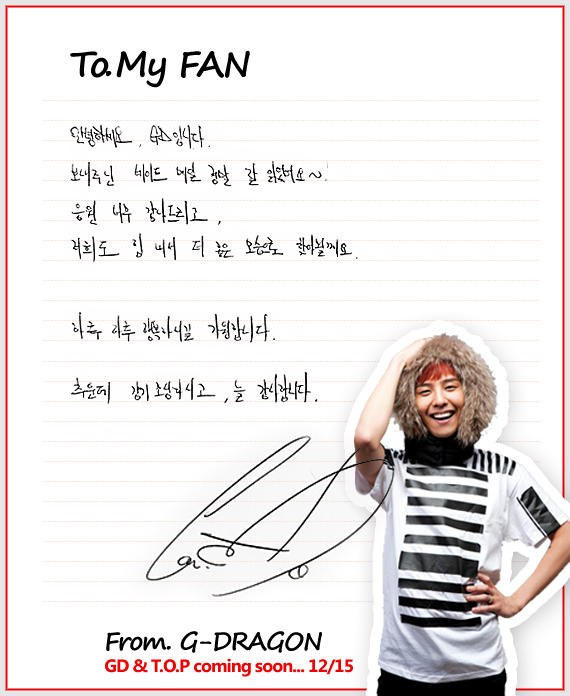 To. My FAN
안녕하세요, GD입니다.
보내주신 네이트 메일 정말 잘 읽었어요~.
응원 너무 감사드리고,
저희도 힘 내서 더 좋은 모습으로 찾아뵐께요.
하루 하루 행복하시길 기원합니다.
추운데 감기 조심하시고, 늘 감사합니다.
From. G-DRAGON
GD & T.O.P coming soon... 12/15